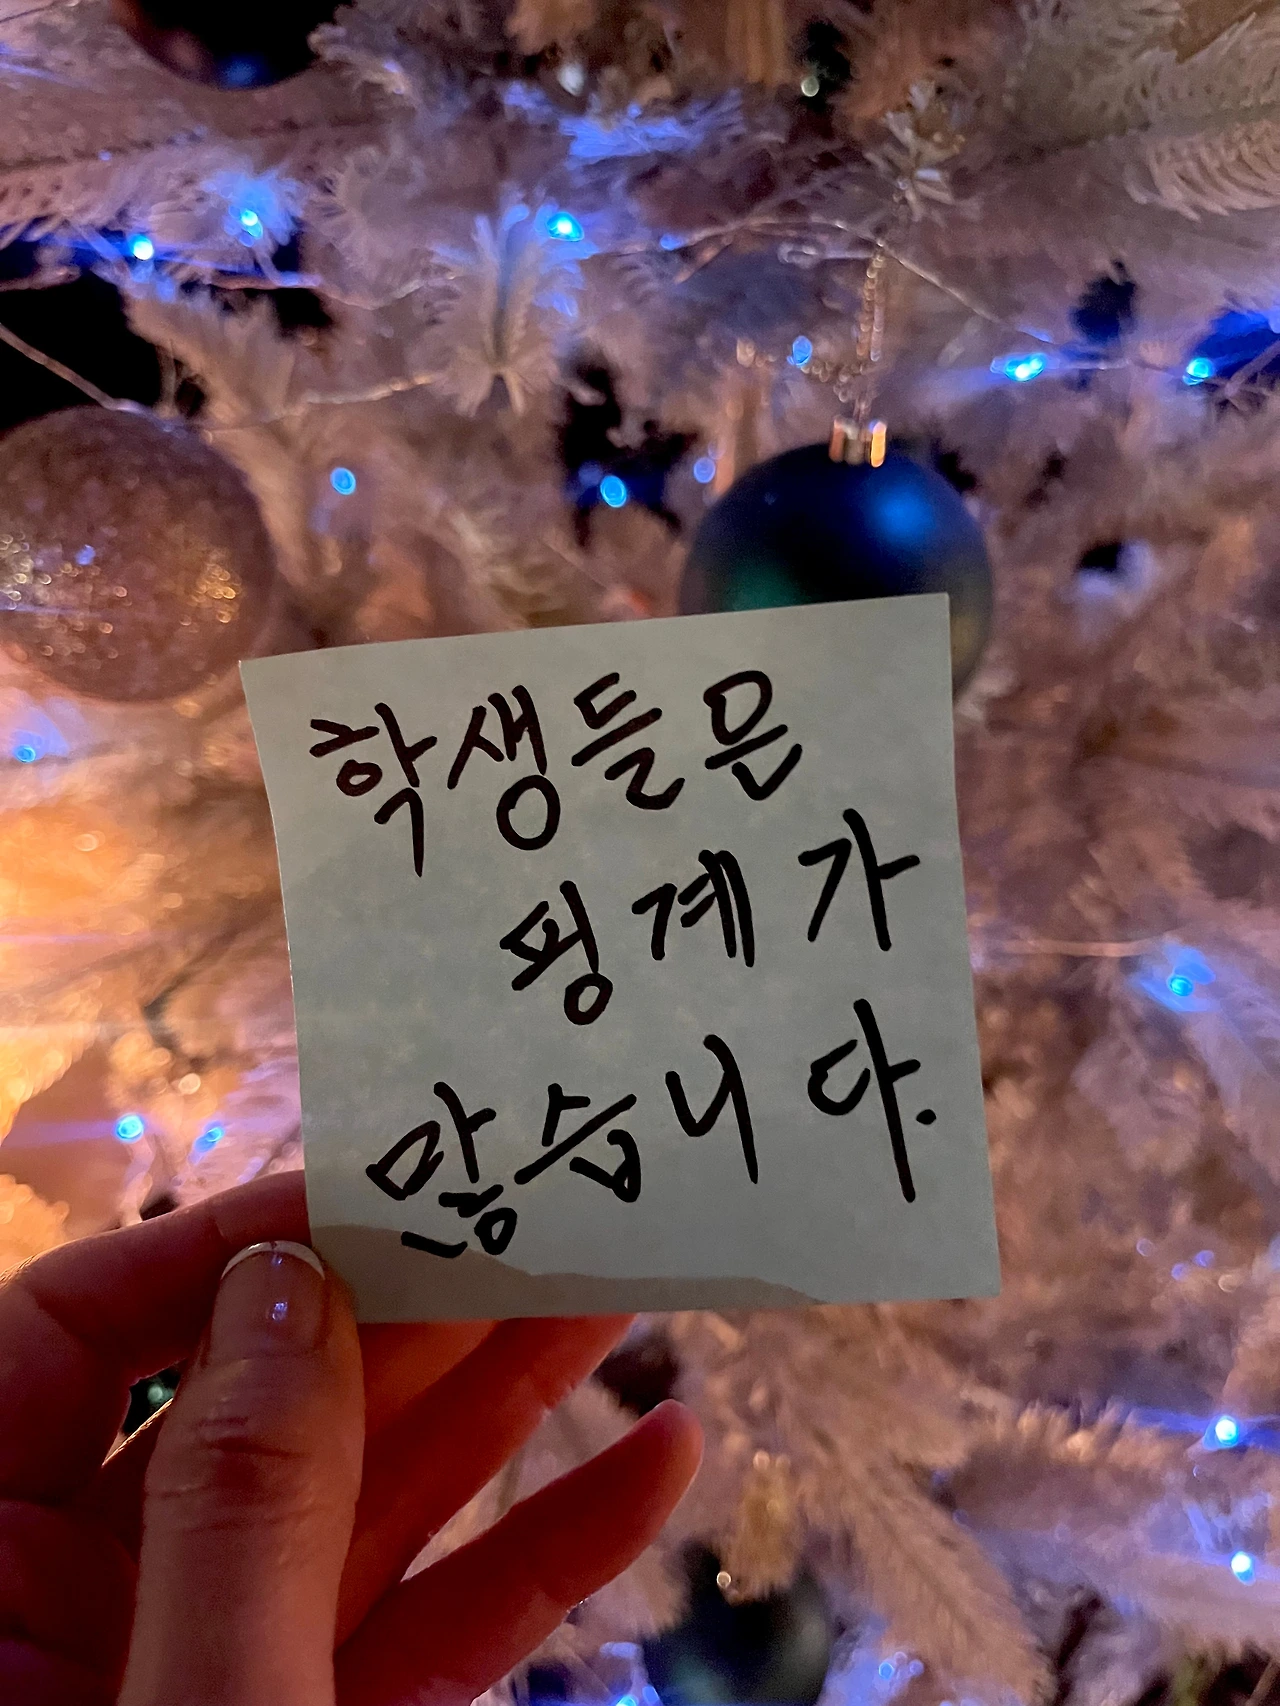 학생들은
핑계가
많습니다.